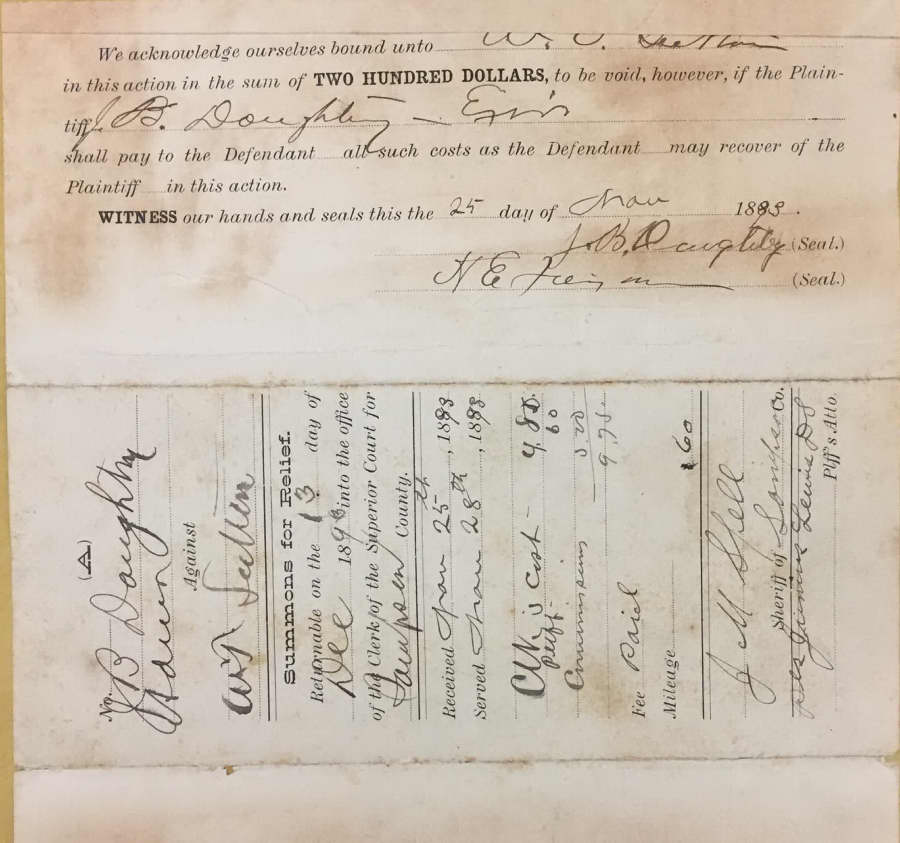 We acknowledge ourselves bound unto W.
in this action in the sum of TWO HUNDRED DOLLARS, to be void, however, if the Plain-
tiff J. B. Doughty
shall pay to the Defendant all such costs as the Defendant may recover of the
Plaintiff in this action.
WITNESS our hands and seals this the 25 day of Nov 1893.
J. B. Doughty (Seal.)
N E (Seal.)
(A)
No.
J B Doughty
Against
Sutton
Summons for Relief.
Returnable on the 13 day of
Dec 1893 into the office
of the Clerk of the Superior Court for
Sampson County.
Received Nov 25th, 1893
Served Nov 28th, 1893
Clk's Cost - 4.80
Plff 60
9.75
Fee Paid
Mileage .60
J M Spell
Sheriff of Sampson Co.
Lewis DS
Plff's Atto.